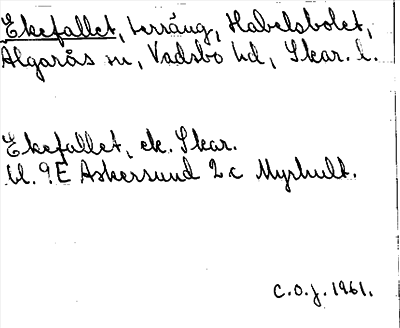 Ekefallet, terräng, Habolsbolet,
Älgarås sn, Vadsbo hd, Skar. l.
Ekefallet, ek. Skar.
bl. 9E Askersund 2c Myrhult.
C.O.J. 1961.